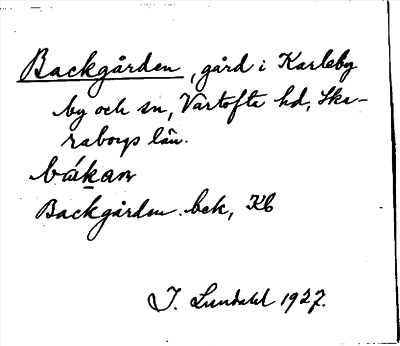 Backgården, gård i Karleby
by och sn, Vartofta hd, Ska-
raborgs län.
bákan
Backgården. bek, Kb
I. Lundahl 1927.